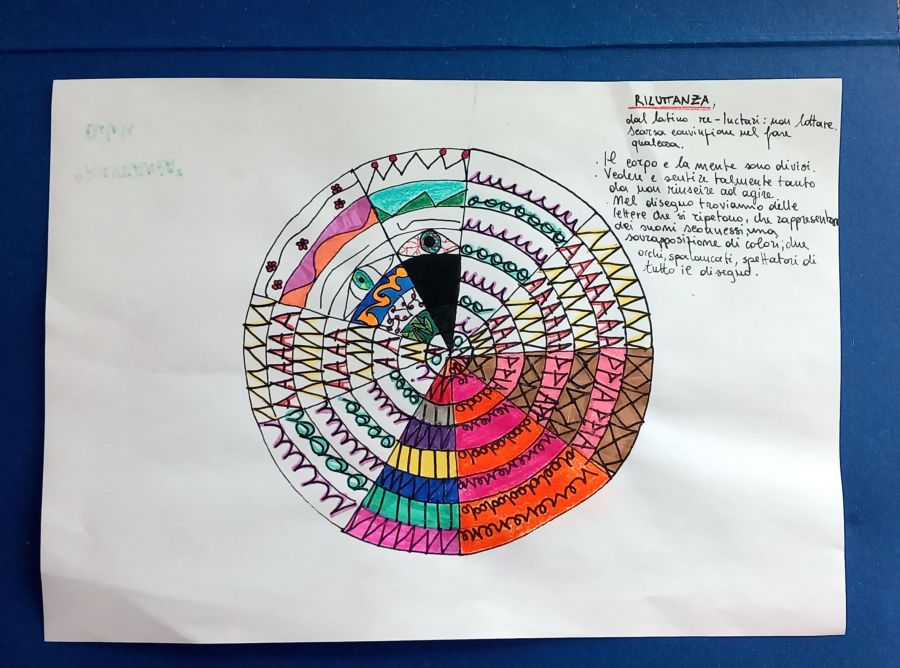 RILUTTANZA,
dal latino re-luctari: non lottare.
scarsa convinzione nel fare
qualcosa.
. Il corpo e la mente sono divisi.
. Vedere e sentire talmente tanto
da non riuscire ad agire.
. Nel disegno troviamo delle
lettere che si ripetono, che rappresentano
dei suoni sconnessi, una
sovrapposizione di colori, due
occhi, spalancati, spettatori di
tutto il disegno.
"RILUTTANZA"